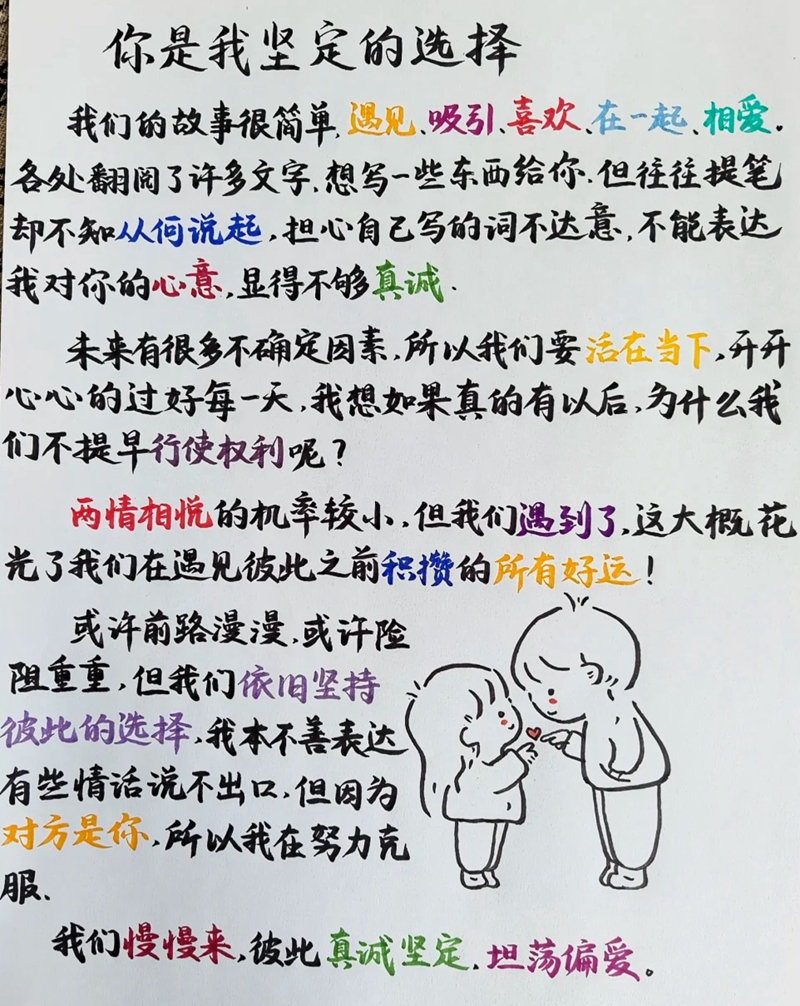 你是我坚定的选择
我们的故事很简单,遇见、吸引、喜欢、在一起、相爱.
各处翻阅了许多文字,想写一些东西给你.但往往提笔
却不知从何说起,担心自己写的词不达意,不能表达
我对你的心意,显得不够真诚.
未来有很多不确定因素,所以我们要活在当下,开开
心心的过好每一天,我想如果真的有以后,为什么我
们不提早行使权利呢?
两情相悦的机率较小,但我们遇到了,这大概花
光了我们在遇见彼此之前积攒的所有好运!
或许前路漫漫,或许险
阻重重,但我们依旧坚持
彼此的选择,我本不善表达
有些情话说不出口,但因为
对方是你,所以我在努力克
服.
我们慢慢来,彼此真诚坚定,坦荡偏爱。